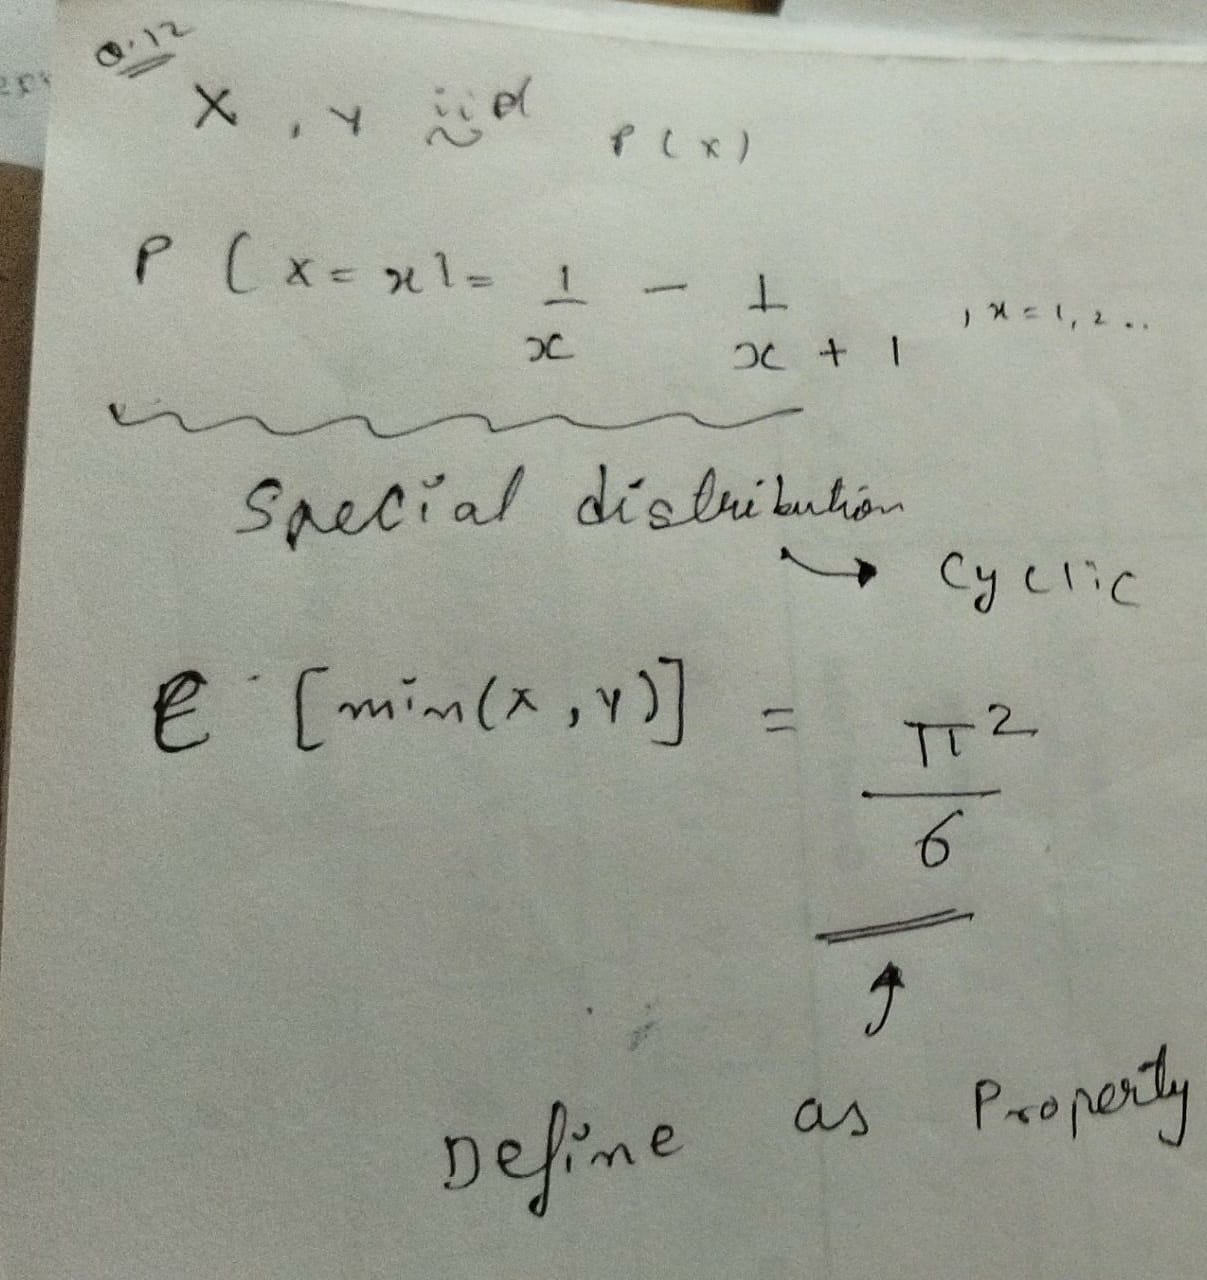 Q.12
X , Y iid ~ P(x)
P(X=x) = 1/x - 1/x+1 , x=1,2..
Special distribution
→ Cyclic
E [min(x,y)] = π²/6
↑
Define as Property